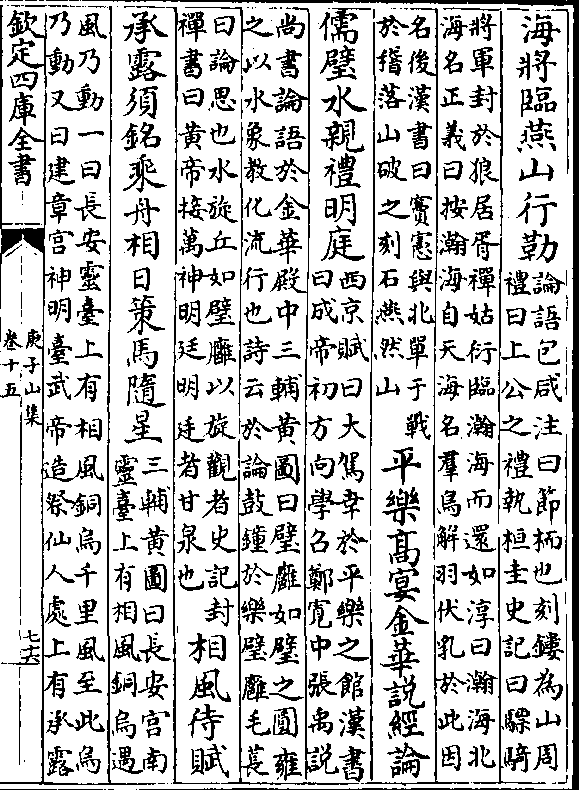 海將臨燕山行勒
論語包咸注曰節柄也刻鏤為山周
禮曰上公之禮執桓圭史記曰驃騎
將軍封於狼居胥禪姑衍臨瀚海而還如淳曰瀚海北
海名正義曰按瀚海自天海名羣鳥解羽伏乳於此因
名後漢書曰竇憲與北單于戰
於稽落山破之刻石燕然山
平樂髙宴金華說經論
儒璧水親禮明庭
西京賦曰大駕幸於平樂之館漢書
曰成帝初方向學召鄭寛中張禹說
尚書論語於金華殿中三輔黃圖曰璧廱如璧之圓雍
之以水象教化流行也詩云於論鼓鐘於樂璧廱毛萇
曰論思也水旋丘如璧廱以旋觀者史記封
禪書曰黃帝接萬神明廷明廷者甘泉也
相風侍賦
承露須銘乘舟相日策馬隨星
三輔黃圖曰長安宮南
靈臺上有相風銅烏遇
風乃動一曰長安靈臺上有相風銅烏千里風至此烏
乃動又曰建章宮神明臺武帝造祭仙人處上有承露
欽定四庫全書
庾子山集
卷十五
七十六